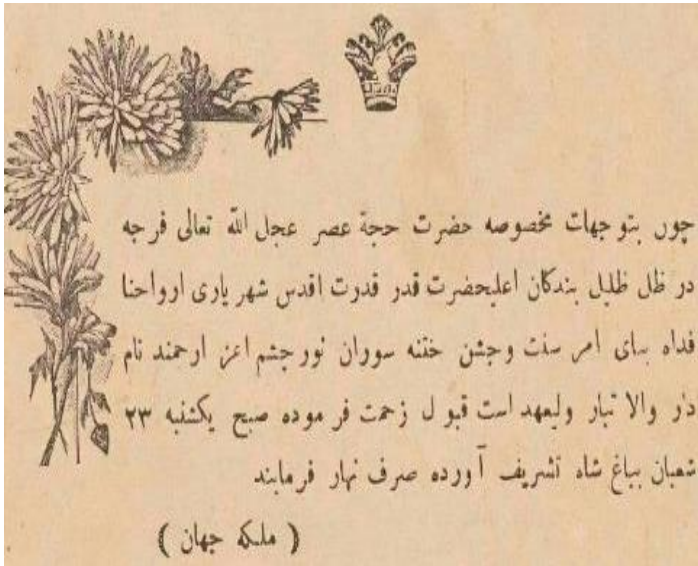 چون بتوجهات مخصوصه حضرت حجة عصر عجل الله تعالی فرجه
در ظل ظلیل بندکان اعلیحضرت قدر قدرت اقدس شهر یاری ارواحنا
فداه بنای امر سنت وجشن ختنه سوران نور چشم اعز ارجمند نام
دار والا تبار ولیعهد است قبول زحمت فرموده صبح یکشنبه ۲۳
شعبان بباغ شاه تشریف آورده صرف نهار فرمایند
( ملکه جهان )